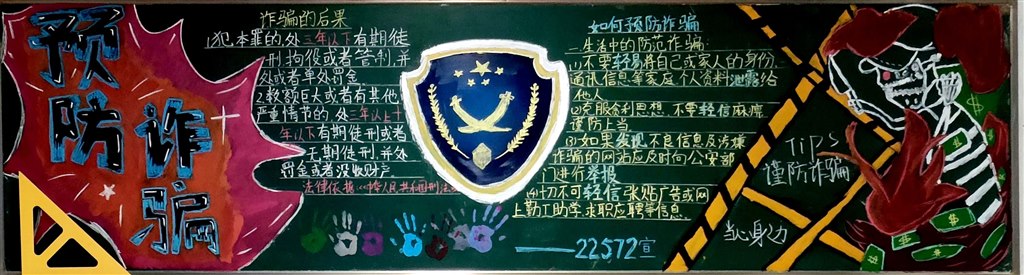 预防
诈骗
诈骗的后果
1.犯本罪的,处三年以下有期徒
刑拘役或者管制,并
处或者单处罚金
2.数额巨大或者有其他
严重情节的,处三年以上十
年以下有期徒刑或者
无期徒刑,并处
罚金或者没收财产
如何预防诈骗
一.生活中的防范诈骗
(1)不要轻易将自己或家人的身份、
通讯信息等家庭个人资料泄露给
他人
(2)克服贪利思想,不要轻信麻痹,
谨防上当
(3)如果发现不良信息及涉嫌
诈骗的网站应及时向公安部
门进行举报
(4)切不可轻信张贴广告或网
上勤工助学、求职应聘等信息
——22572宣
Tips
谨防诈骗